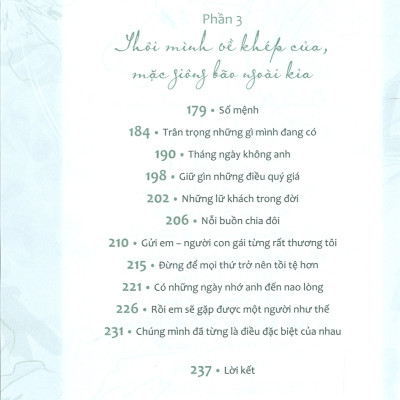 Phần 3
Thôi mình về khép cửa,
mặc giông bão ngoài kia
179 • Số mệnh
184 • Trân trọng những gì mình đang có
190 • Tháng ngày không anh
198 • Giữ gìn những điều quý giá
202 • Những lữ khách trong đời
206 • Nỗi buồn chia đôi
210 • Gửi em – người con gái từng rất thương tôi
215 • Đừng để mọi thứ trở nên tồi tệ hơn
221 • Có những ngày nhớ anh đến nao lòng
226 • Rồi em sẽ gặp được một người như thế
231 • Chúng mình đã từng là điều đặc biệt của nhau
237 • Lời kết